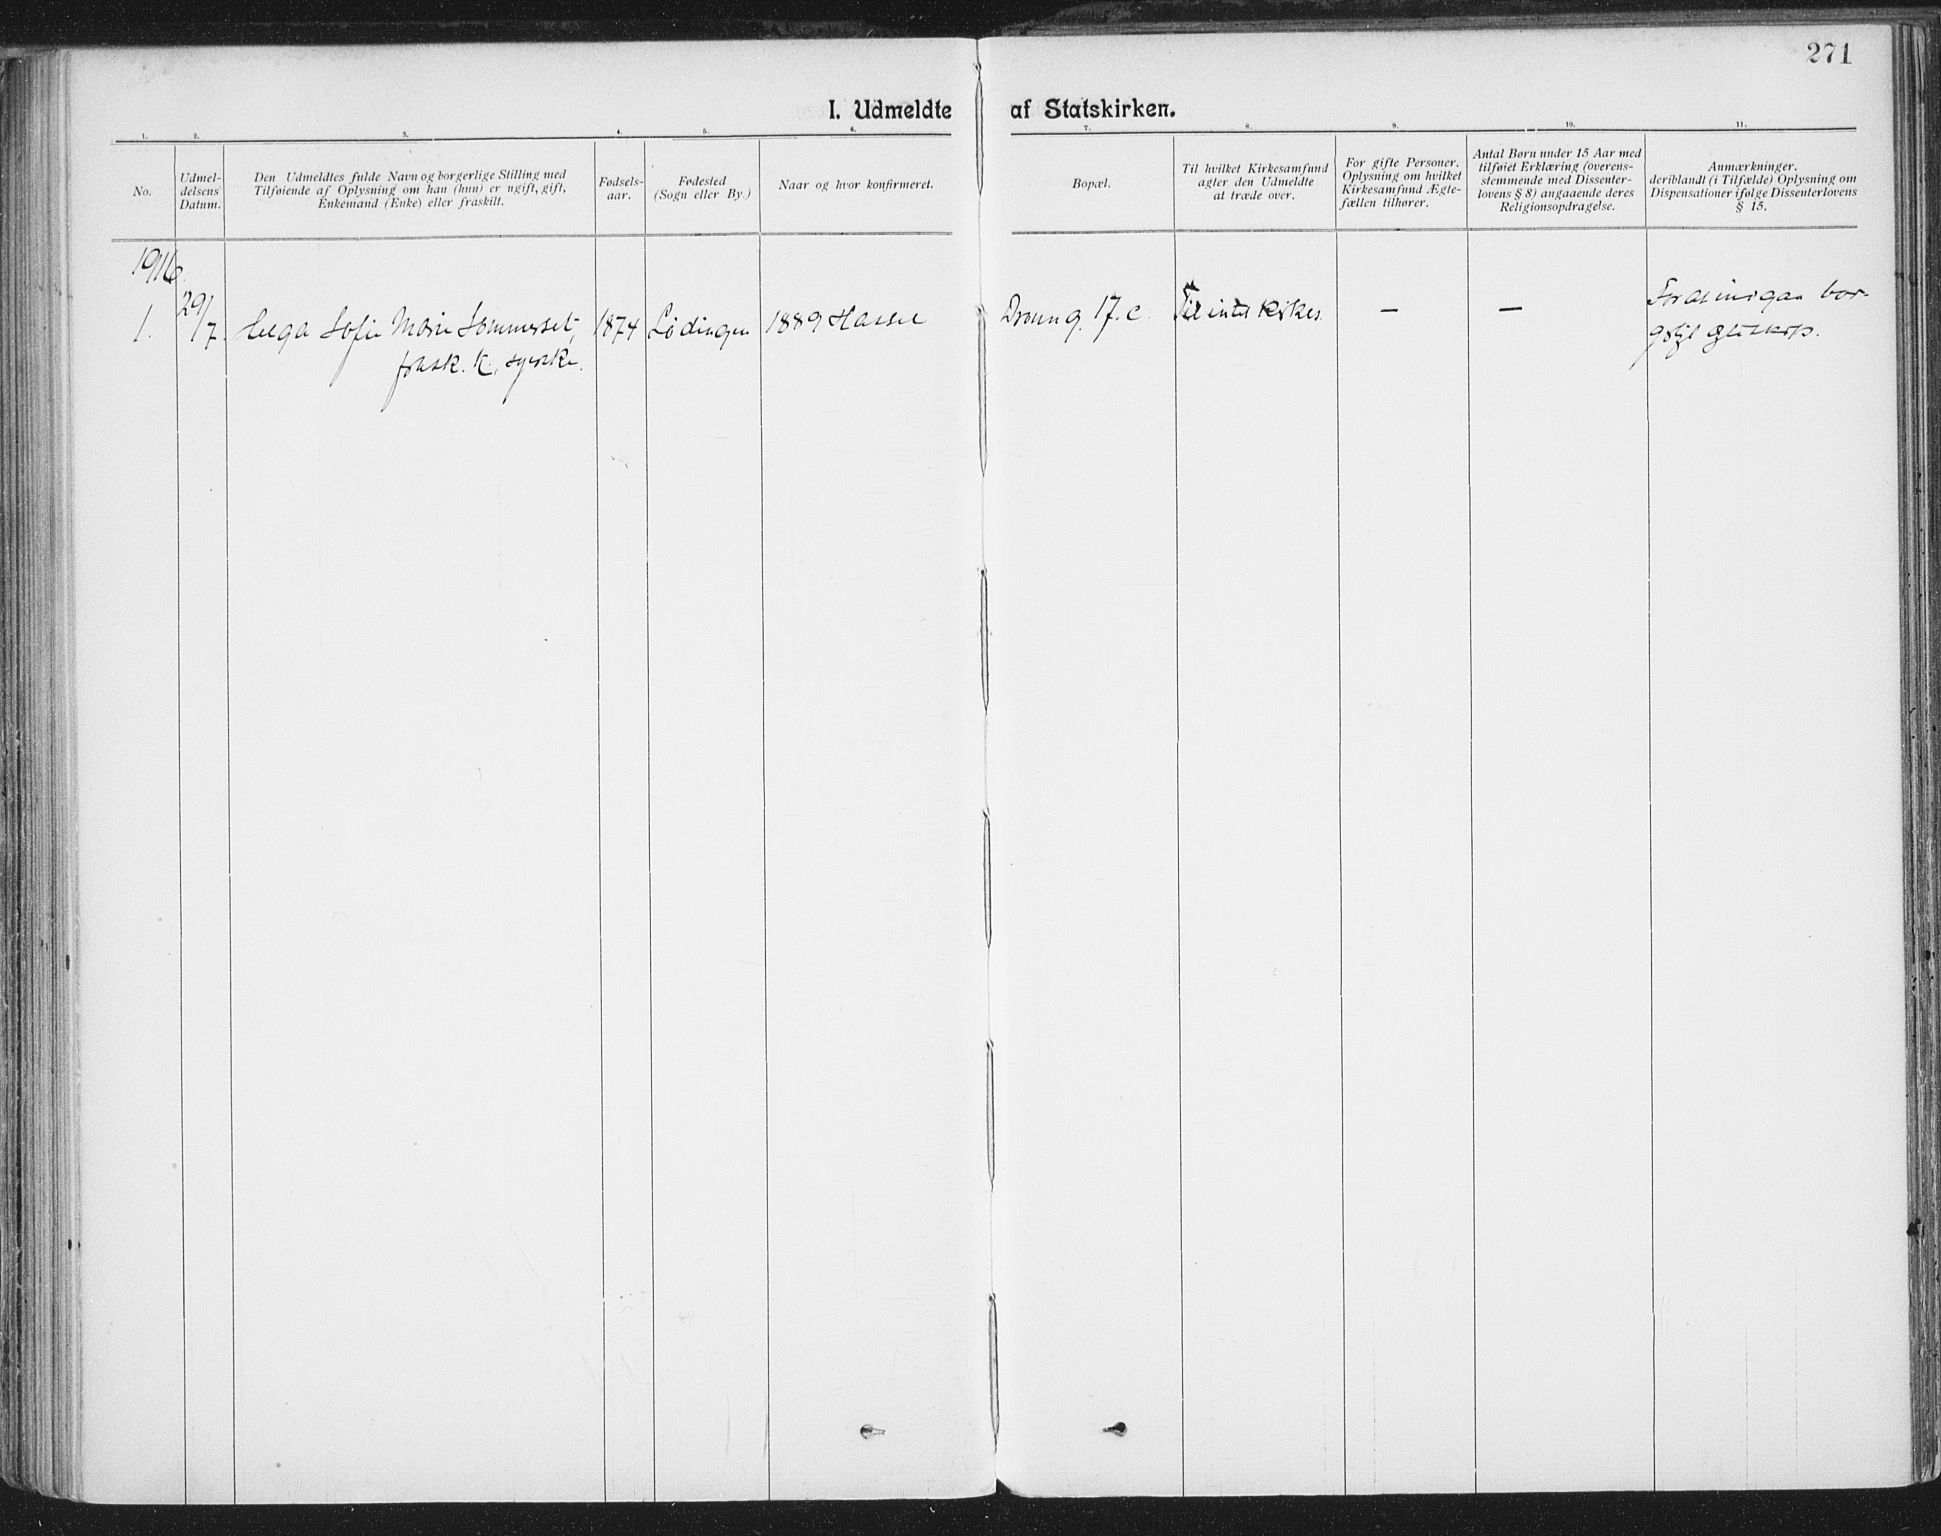 271
I. Udmeldte af Statskirken.
1. 2. 3. 4. 5. 6. 7. 8. 9. 10. 11.
No.
Udmel-
delsens
Datum.
Den Udmeldtes fulde Navn og borgerlige Stilling med
Tilføiende af Oplysning om han (hun) er ugift, gift,
Enkemand (Enke) eller fraskilt.
Fødsels-
aar.
Fødested
(Sogn eller By.)
Naar og hvor konfirmeret.
Bopæl.
Til hvilket Kirkesamfund
agter den Udmeldte
at træde over.
For gifte Personer.
Oplysning om hvilket
Kirkesamfund Ægte-
fællen tilhører.
Antal Børn under 15 Aar med
tilføiet Erklæring (overens-
stemmende med Dissenter-
lovens § 8) angaaende deres
Religionsopdragelse.
Anmærkninger.
deriblandt (i Tilfælde) Oplysning om
Dispensationer ifølge Dissenterlovens
§ 15.
1916.
1. 29/7. Helga Sofie Marie Sommerset, 1874 Lødingen 1889 Hassel Dronn g. 17. c. Til intet kirkes. — — For at inngaa bor-
frask. K., syerske. gerligt egteskap.